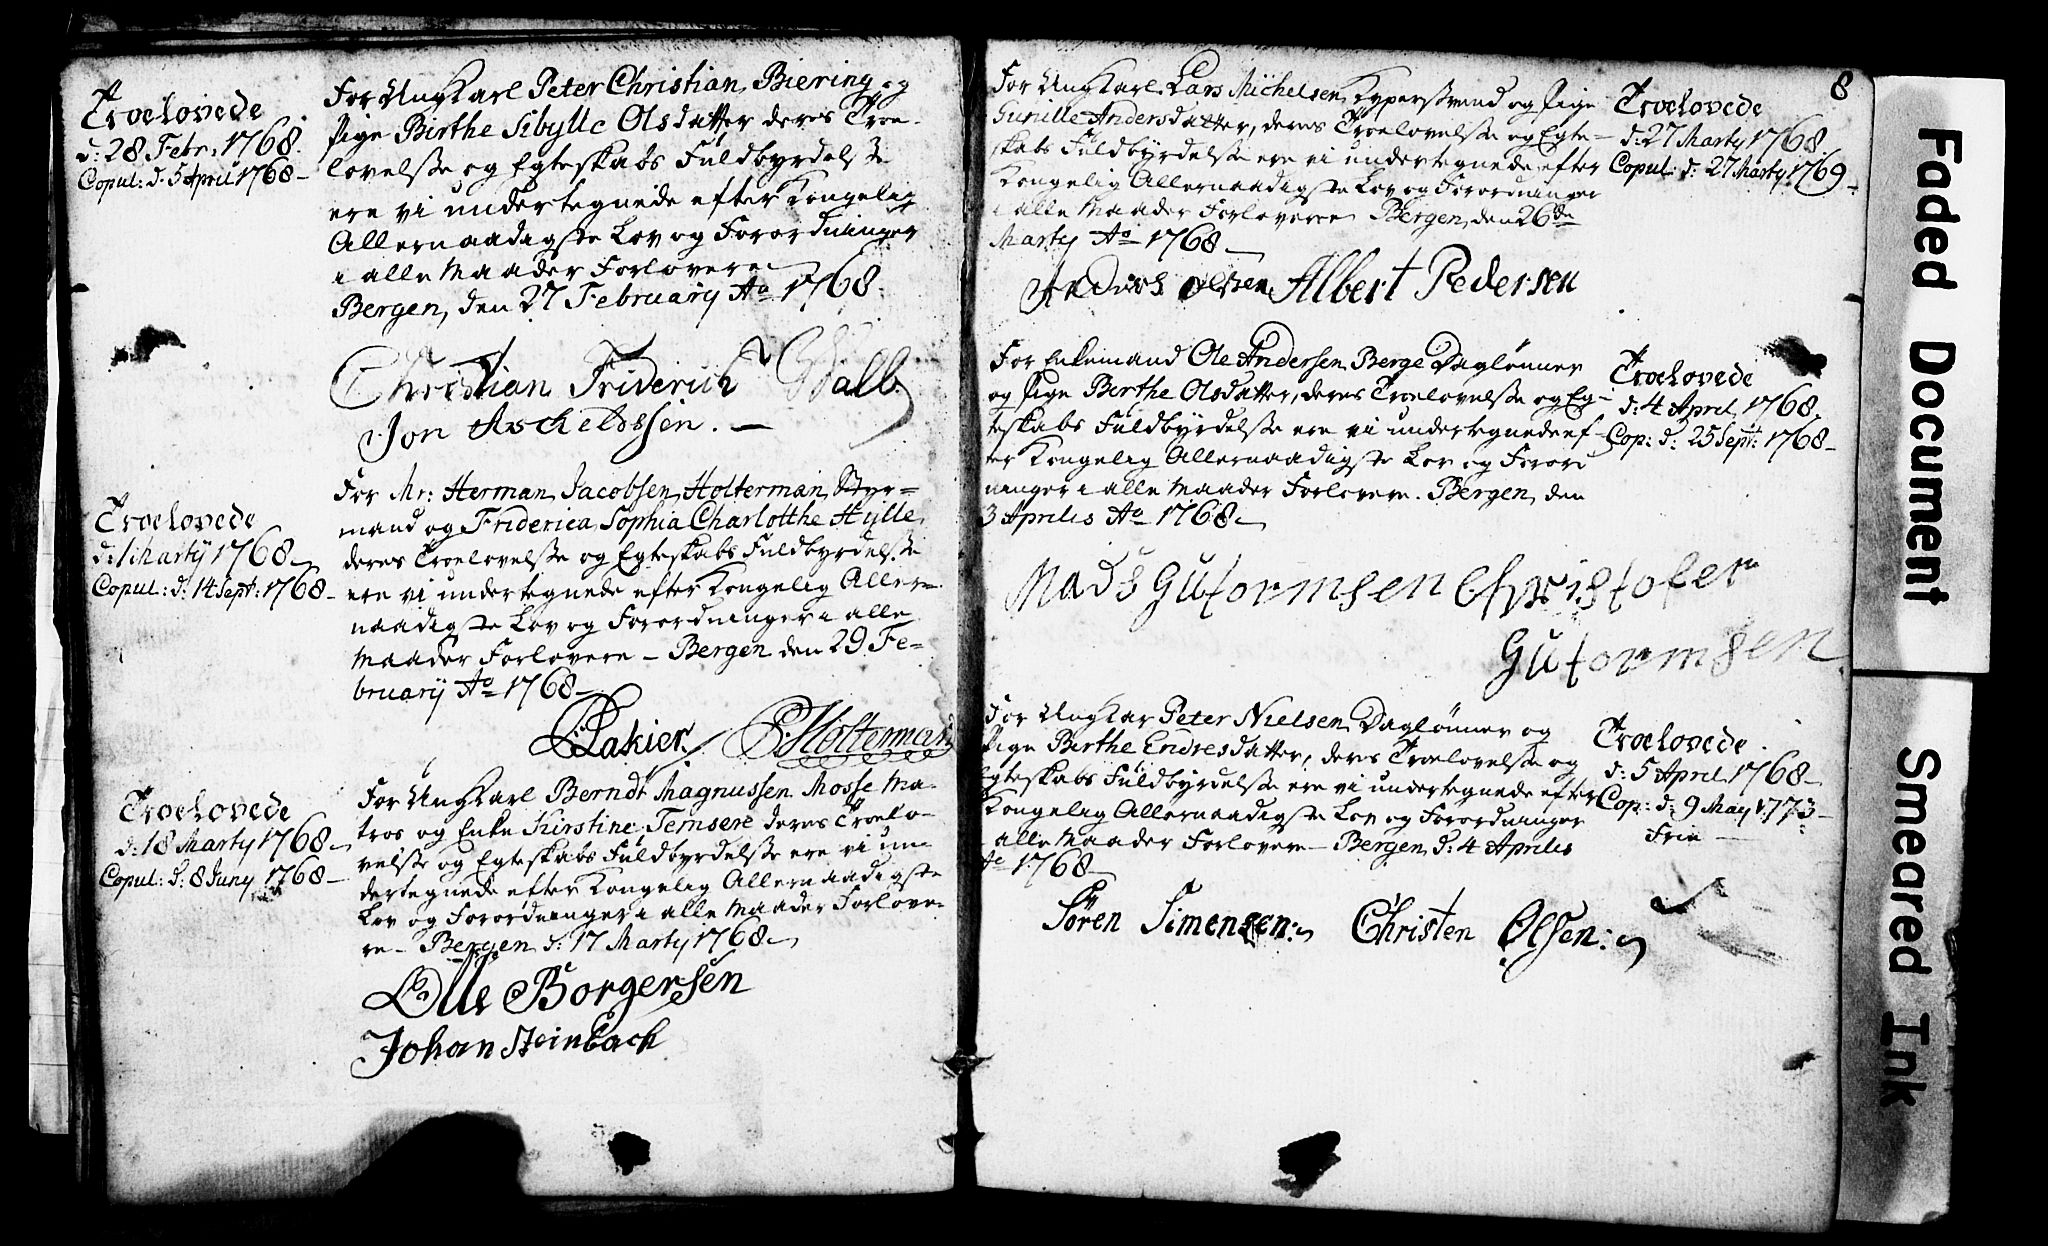 Troelovede
d: 28 Febr: 1768.
Copul: d. 5 April 1768 —
For Ung Karl Peter Christian Biering og
Pige Birthe Sibylle Olsdatter deres Troe-
lovelsse og Egteskabs Fuldbyrdelsse
ere vi undertegnede efter Kongelig
Allernaadigste Lov og Forordninger
i alle Maader Forlovere
Bergen, den 27 February Ao 1768.
Christian Friderich Wallb
Jon Ascheldssen. —
Troelovede
d: 1 Marty 1768 —
Copul: d: 14 Sept: 1768 —
For Mr: Herman Jacobsen Holterman Styr=
mand og Friderica Sophia Charlotthe Hylle
deres Troelovelsse og Egteskabs Fuldbyrdelsse
ere vi undertegnede efter Kongelig Aller-
naadigste Lov og Forordninger i alle
Maader Forlovere — Bergen den 29 Fe=
bruarij Ao 1768 —
Lakier. Holterman
Troelovede
d: 18 Marty 1768 —
Copul: d: 8 Juny 1768 —
For Ung Karl Berndt Magnussen Mosse Ma-
tros og Enke Kirstine Temsere deres Troelo-
velsse og Egteskabs Fuldbyrdelsse ere vi un-
dertegnede efter Kongelig Allernaadigste
Lov og Forordninger i alle Maader Forlove-
re — Bergen d: 17 Marty 1768 —
Olle Borgersen
Johan Steinbach
8
For Ung Karl Lars Michelsen Kyperswend og Pige
Gunille Andersdatter, deres Troelovelsse og Egte-
skabs Fuldbyrdelsse ere vi undertegnede efter
Kongelig Allernaadigste Lov og Forordninger
i alle Maader Forlovere Bergen, den 26de
Marty Ao 1768 —
Troelovede
d: 27 Marty 1768.
Copul: d: 27 Marty 1769 —
Anders Olsen Albert Pedersen
For Enkemand Ole Andersen Berge Daglønner
og Pige Berthe Olsdatter, deres Troelovelsse og Eg-
teskabs Fuldbyrdelsse ere vi undertegnede ef-
ter Kongelig Allernaadigste Lov og Forord
ninger i alle Maader Forlovere. Bergen, den
3 Aprilis Ao 1768 —
Troelovede
d: 4 April 1768.
Cop: d: 25 Sept: 1768 —
Mads Gutormsen Christofer
Gutormsen
For Ung Kar Peter Nielsen Daglønner og
Pige Birthe Endresdatter, deres Troelovelsse og
Egteskabs Fuldbyrdelsse ere vi undertegnede efter
Kongelig Allernaadigste Lov og Forordninger
i alle Maader Forlovere — Bergen d: 4 Aprilis
Ao 1768 —
Troelovede
d: 5 April 1768 —
Cop: d: 9 May 1773 —
Frie —
Sören Simensen: Christen Olsen:
Faded Document
Smeared Ink